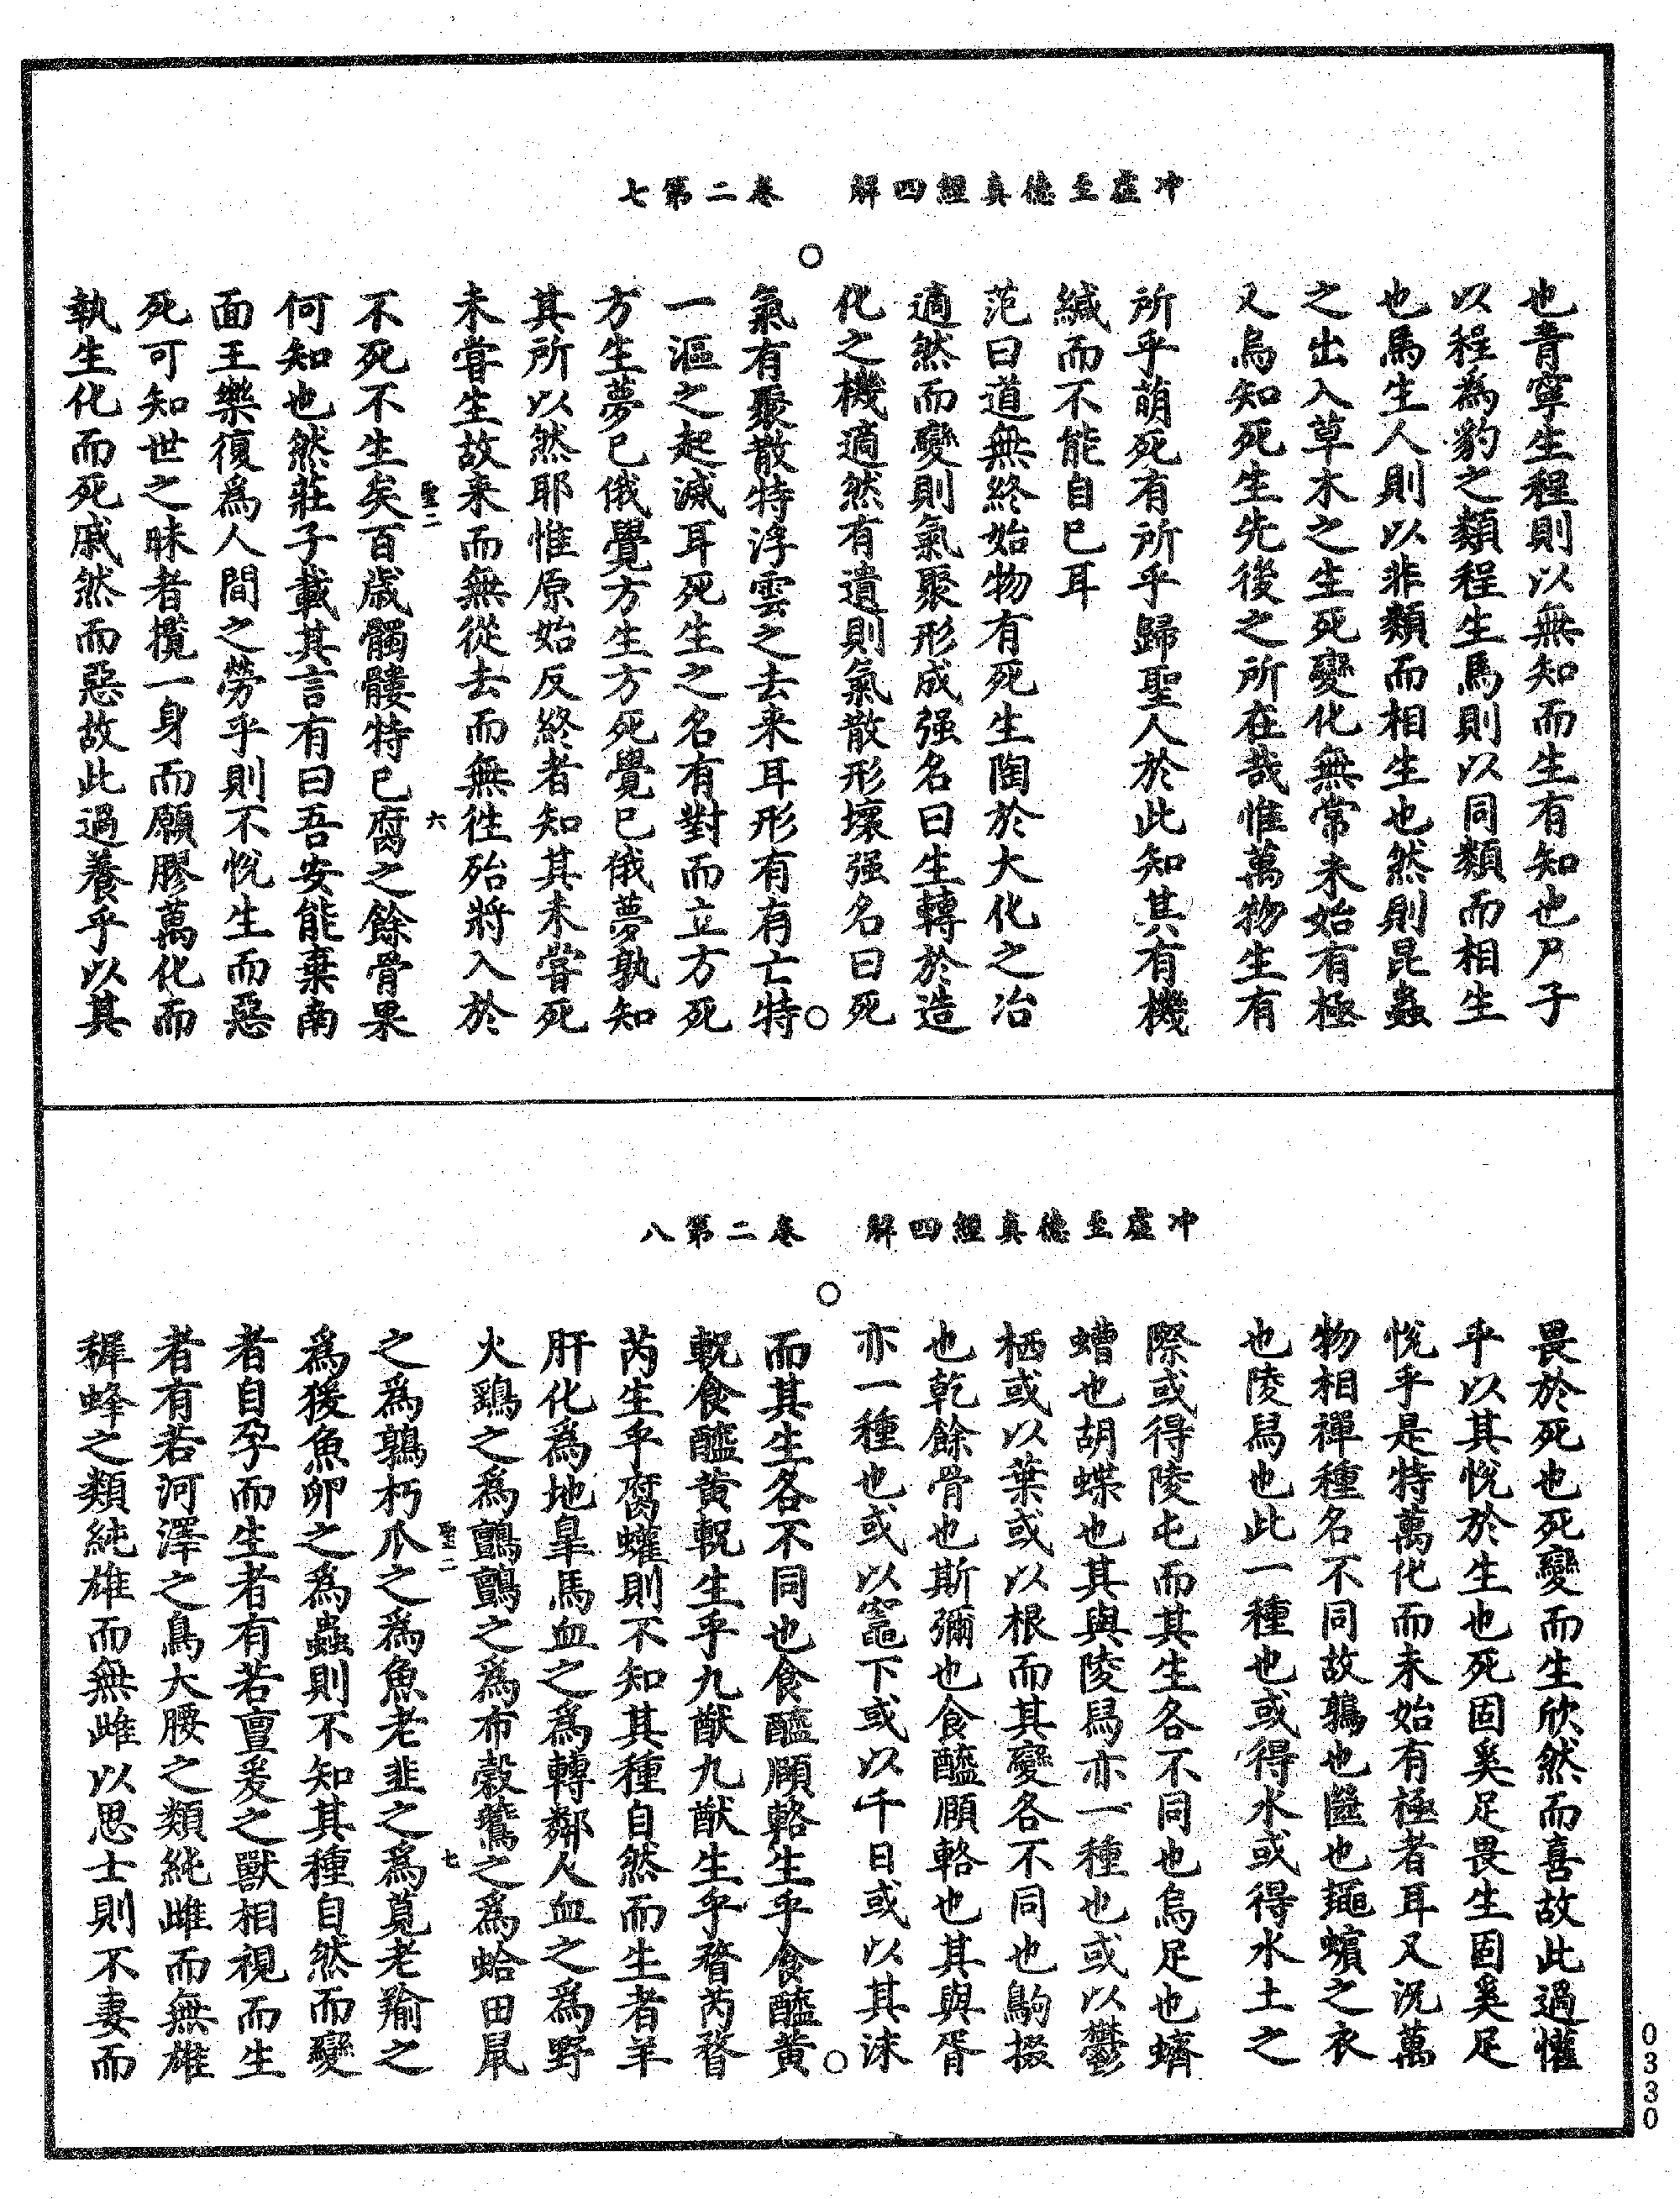 冲虛至德真經四解　卷二第七
也青寧生程則以無知而生有知也尸子
以程為豹之類程生馬則以同類而相生
也馬生人則以非類而相生也然則昆蟲
之出入草木之生死變化無常未始有極
又烏知死生先後之所在哉惟萬物生有
所乎萌死有所乎歸聖人於此知其有機
緘而不能自已耳
范曰道無終始物有死生陶於大化之冶
適然而變則氣聚形成强名曰生轉於造
化之機適然有遺則氣散形壞强名曰死
氣有聚散特浮雲之去来耳形有有亡特
一漚之起滅耳死生之名有對而立方死
方生夢已俄覺方生方死覺已俄夢孰知
其所以然耶惟原始反終者知其未嘗死
未嘗生故来而無從去而無徃殆將入於
聖二　六
不死不生矣百歲髑髏特已腐之餘骨果
何知也然莊子載其言有曰吾安能棄南
面王樂復爲人間之勞乎則不恱生而惡
死可知世之昧者攬一身而願膠萬化而
執生化而死戚然而惡故此過養乎以其
冲虛至德真經四解　卷二第八
畏於死也死變而生欣然而喜故此過懽
乎以其恱於生也死固奚足畏生固奚足
恱乎是特萬化而未始有極者耳又况萬
物相禪種名不同故鶉也㡭也蠅蠙之衣
也陵舄也此一種也或得水或得水土之
際或得陵屯而其生各不同也烏足也蠐
螬也胡蝶也其與陵舄亦一種也或以鬱
栖或以葉或以根而其變各不同也鴝掇
也乾餘骨也斯彌也食醯頤輅也其與胥
亦一種也或以竈下或以千日或以其沫
而其生各不同也食醯頤輅生乎食醯黄
軦食醯黄軦生乎九猷九猷生乎瞀芮瞀
芮生乎腐蠸則不知其種自然而生者羊
肝化爲地臯馬血之爲轉鄰人血之爲野
火鷂之爲鸇鸇之爲布穀鷰之爲蛤田鼠
聖二　七
之爲鶉朽爪之爲魚老韭之爲莧老羭之
爲猨魚卵之爲蟲則不知其種自然而變
者自孕而生者有若亶爰之獸相視而生
者有若河澤之鳥大腰之類純雌而無雄
稺蜂之類純雄而無雌以思士則不妻而
0330